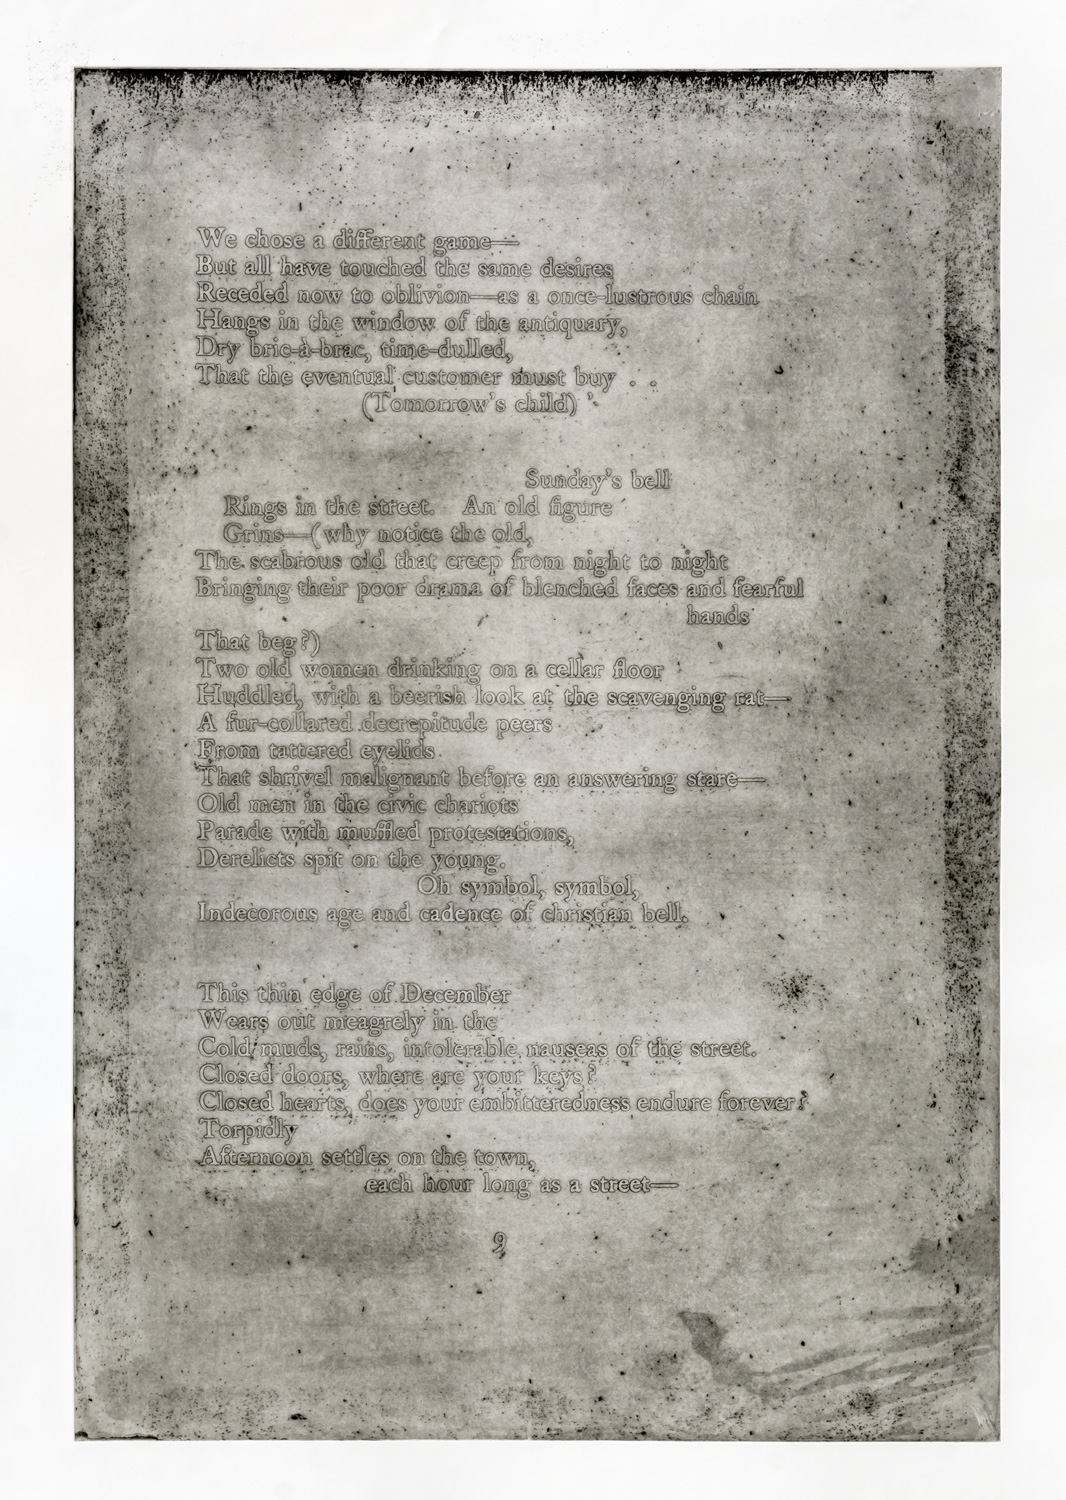 We chose a different game—
But all have touched the same desires
Receded now to oblivion—as a once-lustrous chain
Hangs in the window of the antiquary,
Dry bric-à-brac, time-dulled,
That the eventual customer must buy . .
(Tomorrow's child)
Sunday's bell
Rings in the street. An old figure
Grins—(why notice the old,
The scabrous old that creep from night to night
Bringing their poor drama of blenched faces and fearful
hands
That beg?)
Two old women drinking on a cellar floor
Huddled, with a beerish look at the scavenging rat—
A fur-collared decrepitude peers
From tattered eyelids
That shrivel malignant before an answering stare—
Old men in the civic chariots
Parade with muffled protestations,
Derelicts spit on the young.
Oh symbol, symbol,
Indecorous age and cadence of christian bell.
This thin edge of December
Wears out meagrely in the
Cold muds, rains, intolerable nauseas of the street.
Closed doors, where are your keys?
Closed hearts, does your embitteredness endure forever?
Torpidly
Afternoon settles on the town,
each hour long as a street—
9